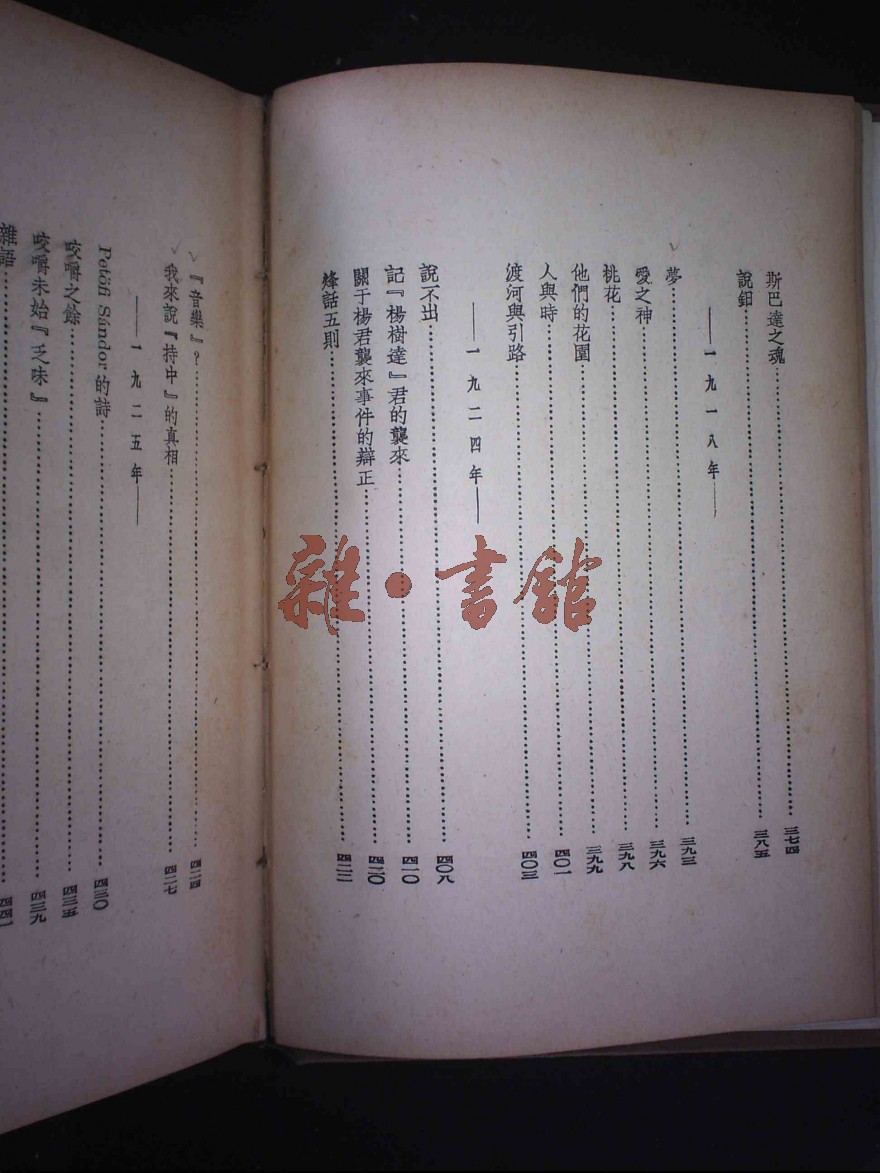 斯巴達之魂 三七四
說鈤 三八五
——一九一八年——
夢 三九三
愛之神 三九六
桃花 三九八
他們的花園 三九九
人與時 四〇一
渡河與引路 四〇三
——一九二四年——
說不出 四〇八
記『楊樹達』君的襲來 四一〇
關于楊君襲來事件的辯正 四二〇
烽話五則 四二二
『音樂』？ 四二四
我來說『持中』的真相 四二七
——一九二五年——
Petöfi Sándor 的詩 四三〇
咬嚼之餘 四三五
咬嚼未始『乏味』 四三九
雜語 四四一
雜·書館